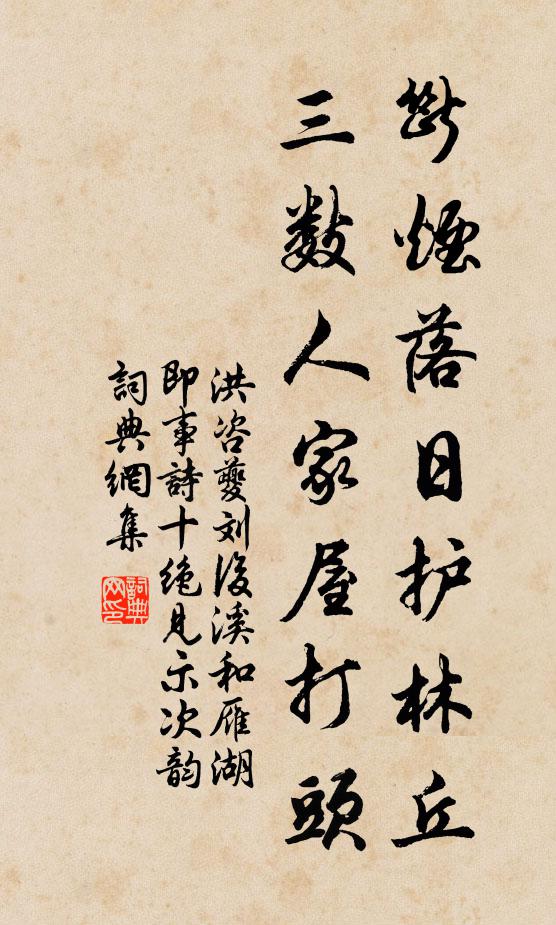 断煙落日护林丘
三数人家屋打頭
洪咨夔刘後溪和雁湖
即事詩十絶見示次韵
詞典網集
詞典網印